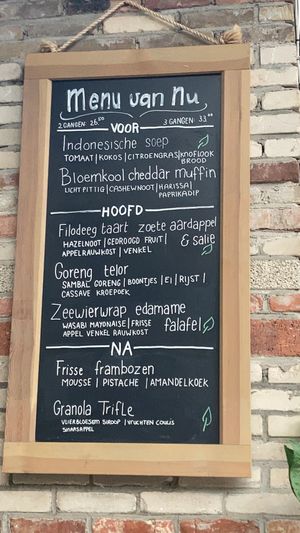 Menu van nu
2 GANGEN: 26.50 3 GANGEN: 33.50
VOOR
Indonesische soep
TOMAAT | KOKOS | CITROENGRAS | KNOFLOOK
BROOD
Bloemkool cheddar muffin
LICHT PITTIG | CASHEWNOOT | HARISSA |
PAPRIKADIP
HOOFD
Filodeeg taart zoete aardappel
& salie
HAZELNOOT | GEDROOGD FRUIT |
APPEL RAUWKOST | VENKEL
Goreng telor
SAMBAL GORENG | BOONTJES | EI | RIJST |
CASSAVE KROEPOEK
Zeewierwrap edamame
falafel
WASABI MAYONAISE | FRISSE
APPEL VENKEL RAUWKOST
NA
Frisse frambozen
MOUSSE | PISTACHE | AMANDELKOEK
Granola Trifle
VLIERBLOESEM SIROOP | VRUCHTEN COULIS
SINAASAPPEL